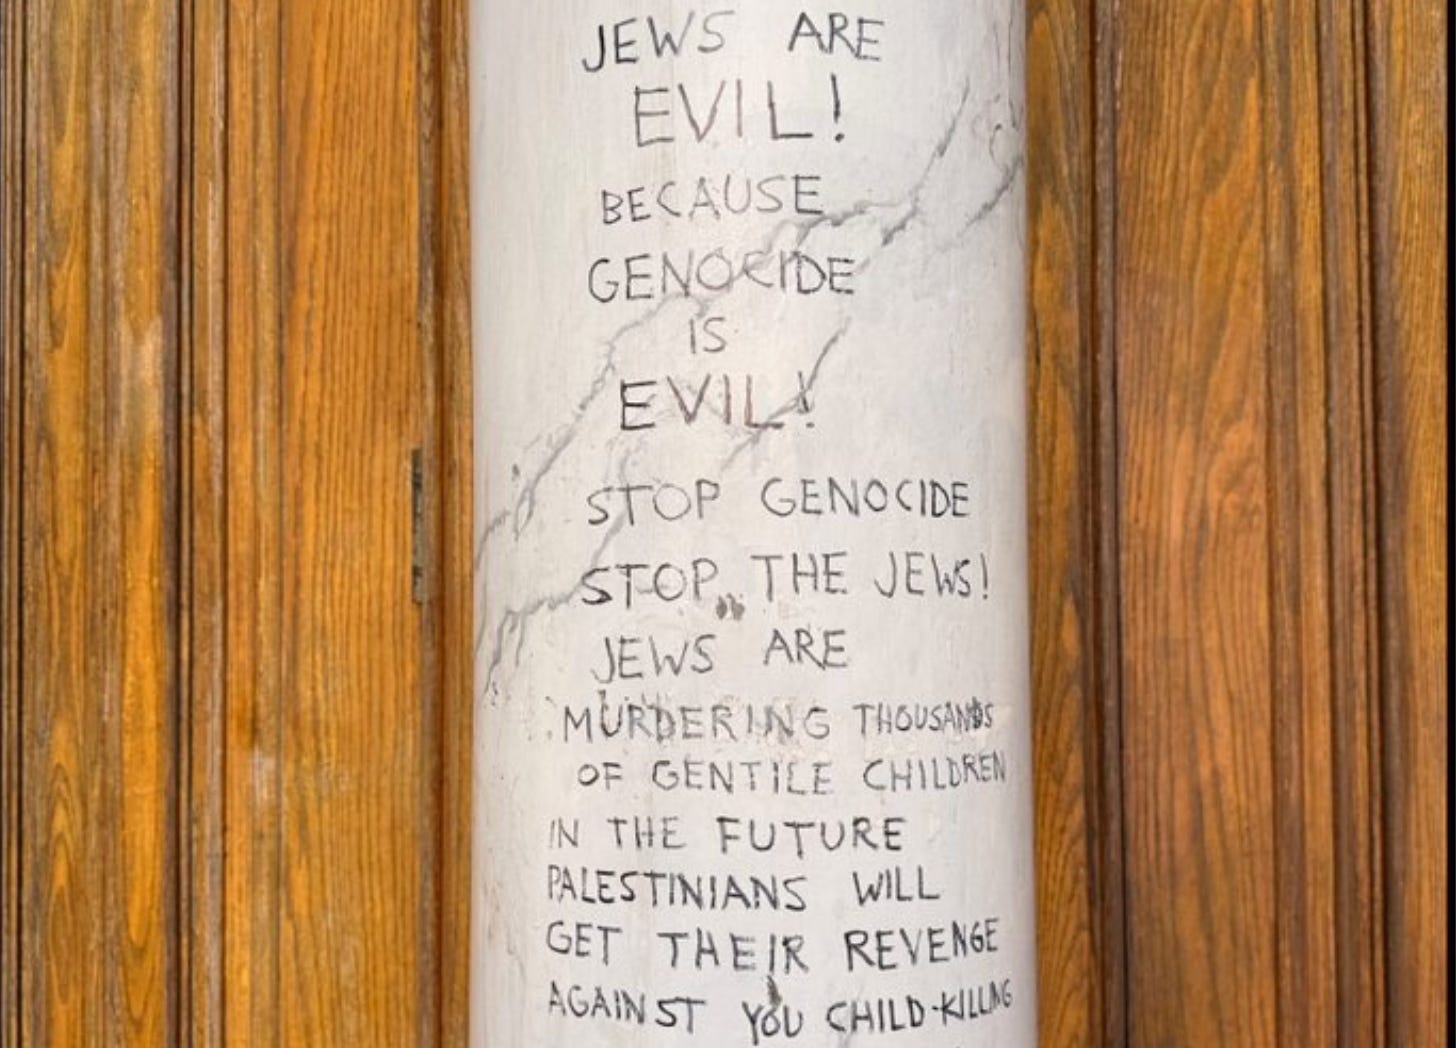 JEWS ARE
EVIL!
BECAUSE
GENOCIDE
IS
EVIL!
STOP GENOCIDE
STOP THE JEWS!
JEWS ARE
MURDERING THOUSANDS
OF GENTILE CHILDREN
IN THE FUTURE
PALESTINIANS WILL
GET THEIR REVENGE
AGAINST YOU CHILD-KILLING